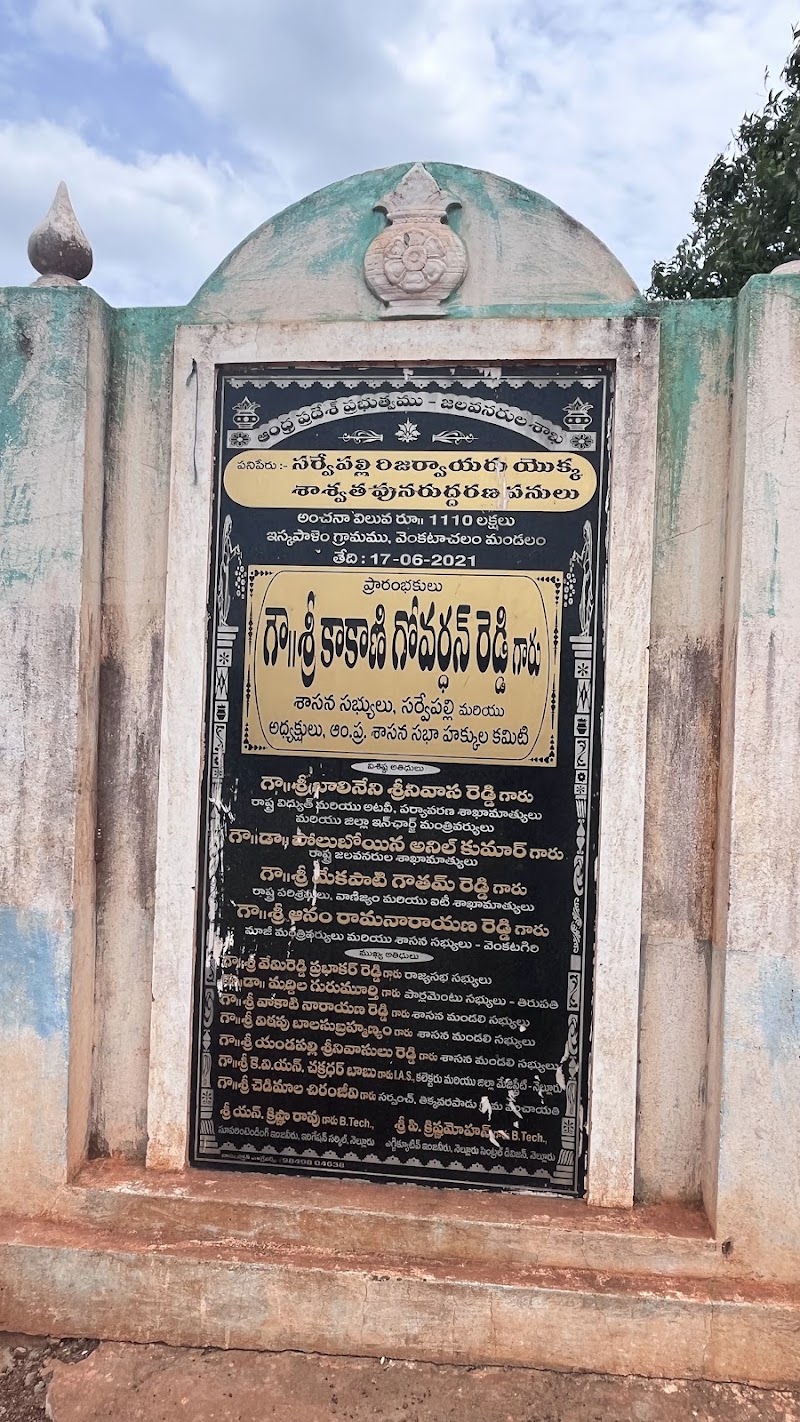 ఆంధ్ర ప్రదేశ్ ప్రభుత్వము - జలవనరులశాఖ
పనిపేరు :- సర్వేపల్లి రిజర్వాయరు యొక్క
శాశ్వత పునరుద్ధరణ పనులు
అంచనా విలువ రూ॥ 1110 లక్షలు
ఇస్కపాళెం గ్రామము, వెంకటాచలం మండలం
తేది : 17-06-2021
ప్రారంభకులు
గౌ॥శ్రీ కాకాణి గోవర్ధన్ రెడ్డి గారు
శాసన సభ్యులు, సర్వేపల్లి మరియు
అధ్యక్షులు, ఆం.ప్ర. శాసన సభా హక్కుల కమిటి
విశిష్ట అతిధులు
గౌ॥శ్రీ బాలినేని శ్రీనివాస రెడ్డి గారు
రాష్ట్ర విద్యుత్ మరియు అటవీ, పర్యావరణ శాఖామాత్యులు
మరియు జిల్లా ఇన్‌ఛార్జ్ మంత్రివర్యులు
గౌ॥డా॥ పోలుబోయిన అనిల్ కుమార్ గారు
రాష్ట్ర జలవనరుల శాఖామాత్యులు
గౌ॥శ్రీ మేకపాటి గౌతమ్ రెడ్డి గారు
రాష్ట్ర పరిశ్రమలు, వాణిజ్యం మరియు ఐటీ శాఖామాత్యులు
గౌ॥శ్రీ ఆనం రామనారాయణ రెడ్డి గారు
మాజీ మంత్రివర్యులు మరియు శాసన సభ్యులు - వెంకటగిరి
ముఖ్య అతిధులు
గౌ॥శ్రీ వేమిరెడ్డి ప్రభాకర్ రెడ్డి గారు రాజ్యసభ సభ్యులు
గౌ॥డా॥ మద్దిల గురుమూర్తి గారు పార్లమెంటు సభ్యులు - తిరుపతి
గౌ॥శ్రీ వాకాటి నారాయణ రెడ్డి గారు శాసన మండలి సభ్యులు
గౌ॥శ్రీ విఠపు బాలసుబ్రహ్మణ్యం గారు శాసన మండలి సభ్యులు
గౌ॥శ్రీ యండపల్లి శ్రీనివాసులు రెడ్డి గారు శాసన మండలి సభ్యులు
గౌ॥శ్రీ కె.వి.యన్. చక్రధర్ బాబు గారు I.A.S., కలెక్టరు మరియు జిల్లా మేజిస్ట్రేట్ - నెల్లూరు
గౌ॥శ్రీ చెడిమాల చిరంజీవి గారు సర్పంచ్, తిక్కవరపాడు గ్రామ పంచాయతి
శ్రీ యన్. క్రిష్ణా రావు గారు B.Tech.,
సూపరింటెండింగ్ ఇంజనీరు, ఇరిగేషన్ సర్కిల్, నెల్లూరు
శ్రీ పి. క్రిష్ణమోహన్ గారు B.Tech.,
ఎగ్జిక్యూటివ్ ఇంజనీరు, నెల్లూరు సెంట్రల్ డివిజన్, నెల్లూరు
98490 04636